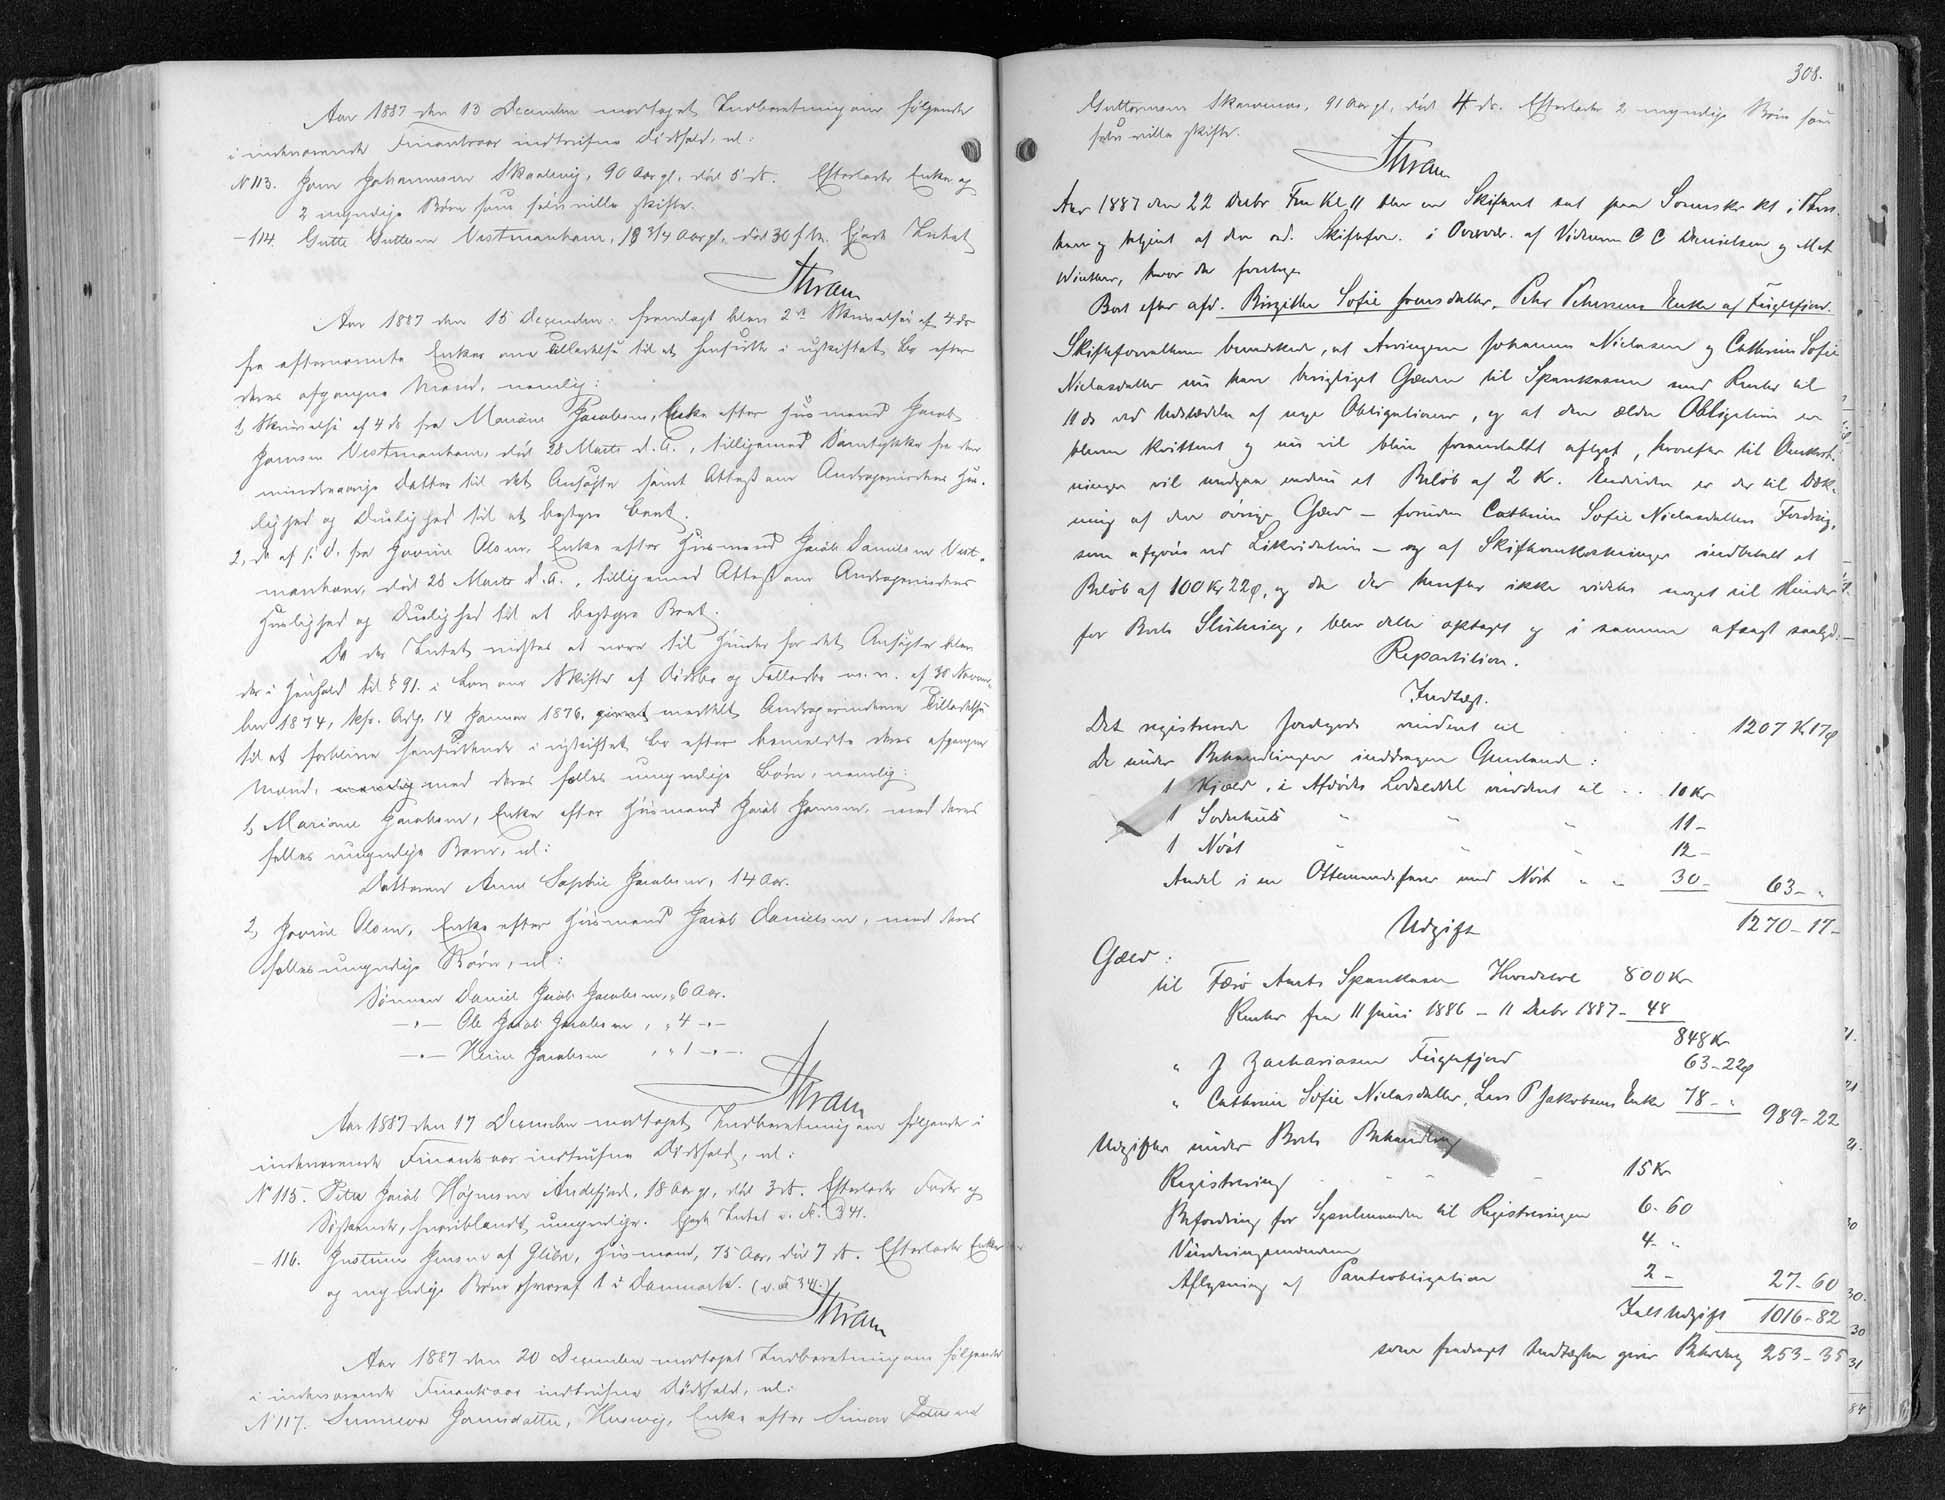 Aar 1887 den 13 December modtaget Indberetning om følgende
i indeværende Finantsaar indtrufne Dødsfald, nl:
N 113. Joen Johannesen Skaalevig, 90 Aar gl, død 5 ds. Efterlader Enke og
2 myndige Børn som selv ville skifte.
- 114. Gutte Guttesen Vestmanhavn, 18 3/4 Aar gl, død 30 f. M. Ejede Intet
Thram
Aar 1887 den 15 December fremlagt blev 2de Skrivelser af 4 ds
fra efternævnte Enker om Tilladelse til at hensidde i uskiftet Bo efter
deres afgangne Mænd, nemlig:
1, Skrivelse af 4 ds fra Mariane Jacobsen, Enke efter Husmand Jacob
Joensen Vestmanhavn, død 28 Marts d. A., tilligemed Samtykke fra den
mindreaarige Datter til det Ansøgte samt Attest om Andragerindens Hus-
lighed og Duelighed til at bestyre Boet.
2, do af s. D. fra Jovine Olsen, Enke efter Husmand Jacob Danielsen Vest-
manhavn, død 28 Marts d. A., tilligemed Attest om Andragerindens
Huslighed og Duelighed til at bestyre Boet.
Da der Intet vidstes at være til Hinder for det Ansøgte blev
der i Henhold til § 91. i Lov om Skifte af Dødsbo og Fællesbo m. v. af 30 Novem-
ber 1874, kfr. Adg. 14 Januar 1876, meddelt Andragerinderne Tilladelse
til at forblive hensiddende i uskiftet Bo efter bemeldte deres afgangne
Mænd, med deres fælles umyndige Børn, nemlig:
1, Mariane Jacobsen, Enke efter Husmand Jacob Joensen, med deres
fælles umyndige Barn, nl:
Datteren Anne Sophie Jacobsen, 14 Aar.
2, Jovine Olsen, Enke efter Husmand Jacob Danielsen, med deres
fælles umyndige Børn, nl:
Sønnen Daniel Jacob Jacobsen, 6 Aar.
-"- Ole Jacob Jacobsen, " 4 -"-
-"- Heine Jacobsen, " 1 -"-
Thram
Aar 1887 den 17 December modtaget Indberetning om følgende i
indeværende Finantsaar indtrufne Dødsfald, nl:
N 115. Peter Jacob Højgaard Andefjord, 18 Aar gl, død 3 ds. Efterlader Fader og
Søskende, hvoriblandt umyndige. Ejede Intet v. F. 341.
- 116. Justinus Jensen af Glibre, Husmand, 75 Aar, død 7 ds. Efterlader Enke
og myndige Børn hvoraf 1 i Danmark. (v. F 341.)
Thram
Aar 1887 den 20 December modtaget Indberetning om følgende
i indeværende Finantsaar indtrufne Dødsfald, nl:
N 117. Sunneva Joensdatter, Husevig, Enke efter Simon
308.
Guttormsen Skarvenes, 91 Aar gl, død 4 ds. Efterlader 2 myndige Børn som
selv ville skifte.
Thram
Aar 1887 den 22 Decbr Fm Kl 11 blev en Skifteret sat paa Sorenskr kt i Thors-
havn og betjent af den ord. Skifteforv. i Overvær. af Vidnerne C C Danielsen og M A
Winther, hvor da foretoges
Boet efter afd. Birgitte Sofie Joensdatter, Peter Petersens Enke af Fuglefjord.
Skifteforvalteren bemærkede, at Arvingerne Johannes Niclasen og Cathrine Sofie
Niclasdatter nu have berigtiget Gælden til Sparekassen med Renter til
11 ds ved Udstedelse af nye Obligationer, og at den ældre Obligation er
bleven kvitteret og nu vil blive foranstaltet aflyst, hvorefter til Omkost-
ninger vil medgaa endnu et Beløb af 2 Kr. Endvidere er der til Dæk-
ning af den øvrige Gæld — foruden Cathrine Sofie Niclasdatters Fordring,
som afgøres ved Likvidation — og af Skifteomkostninger indbetalt et
Beløb af 100 Kr 22 ø, og da der herefter ikke vides noget til Hinder
for Boets Slutning, blev dette optaget og i samme afsagt saalyd:
Repartition.
Indtægt.
Det registrerede Jordegods vurderet til . . . 1207 Kr 17 ø
De under Behandlingen inddragne Genstande:
1 Kjæld, i Afdødes Lodseddel vurderet til . . 10 Kr
1 Sodnhuus " " " 11 -
1 Nøst " " " 12 -
Andel i en Ottemandsfarer med Nøst " " 30 - 63 - "
1270 - 17 -
Udgift
Gæld:
til Færø Amts Sparekasse Hovedstol 800 Kr
Renter fra 11 Juni 1886 - 11 Decbr 1887 - 48
848 Kr
" J Zachariasen Fuglefjord 63 - 22 ø
" Cathrine Sofie Niclasdatter, Lars P Jakobsens Enke 78 - " 989 - 22
Udgifter under Boets Behandling
Registrering . " - 15 Kr
Befordring for Sysselmanden til Registreringen 6 - 60
Vurderingsmændene 4 - "
Aflysning af Panteobligation 2 - 27 - 60
Ialt Udgift 1016 - 82
som fradraget Indtægten giver Beholdning 253 - 35